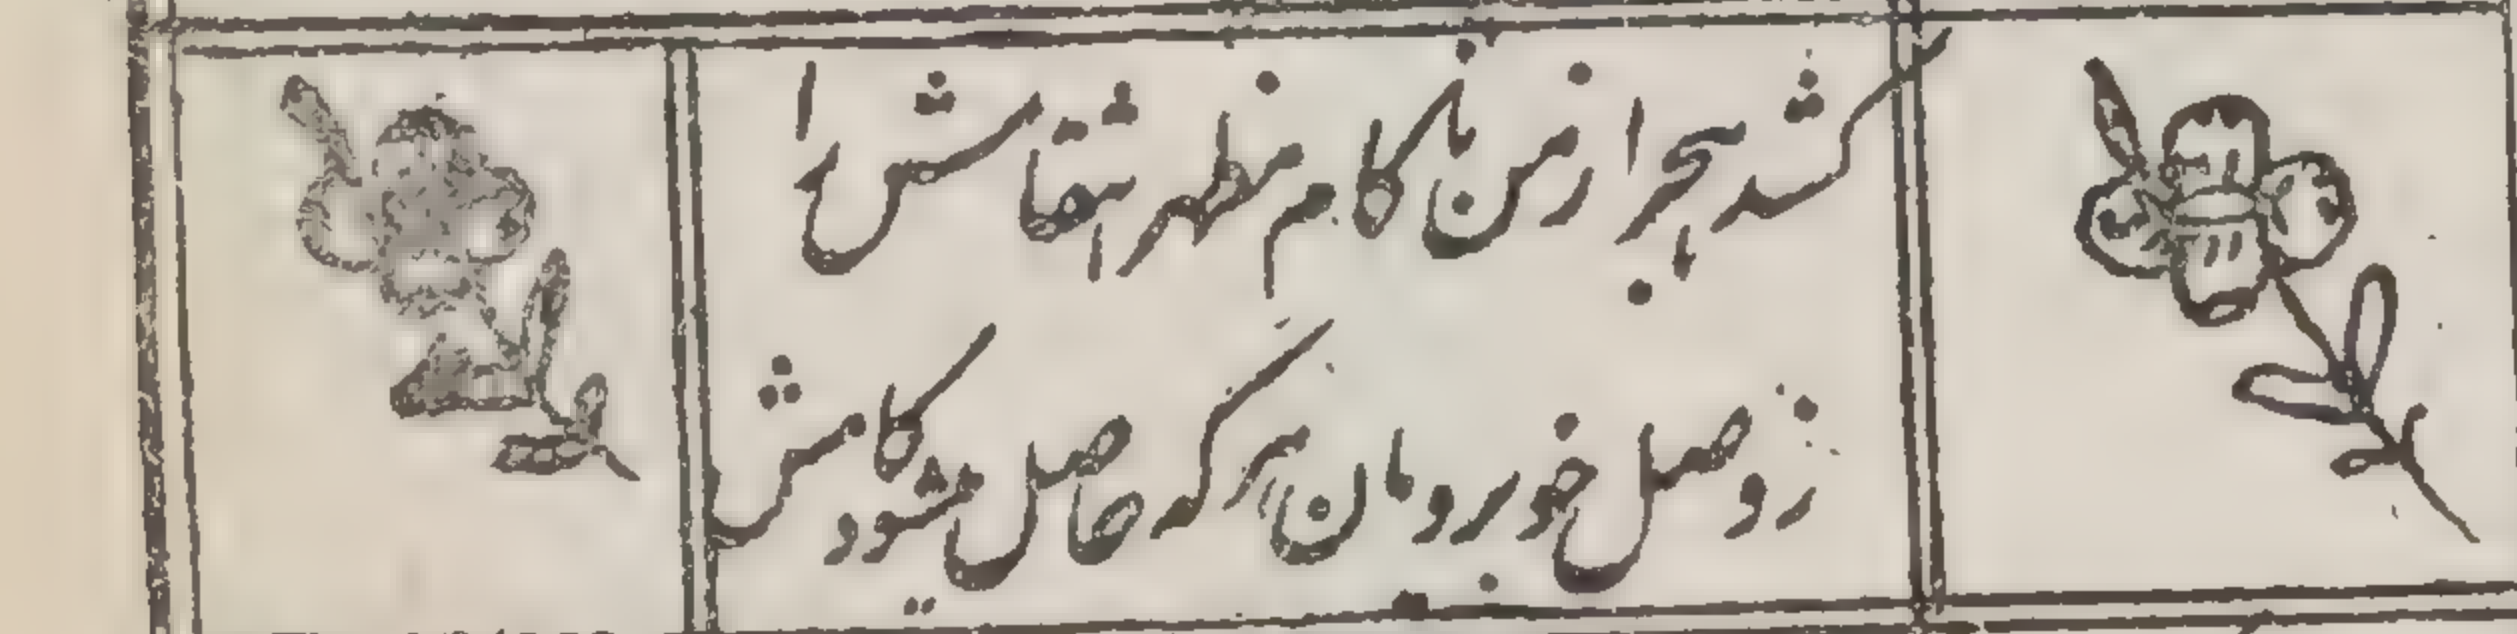 کشد هجر از من ناکام مظهر انتقامش را
ز وصل خوبرویان هر که حاصل میشود کامش